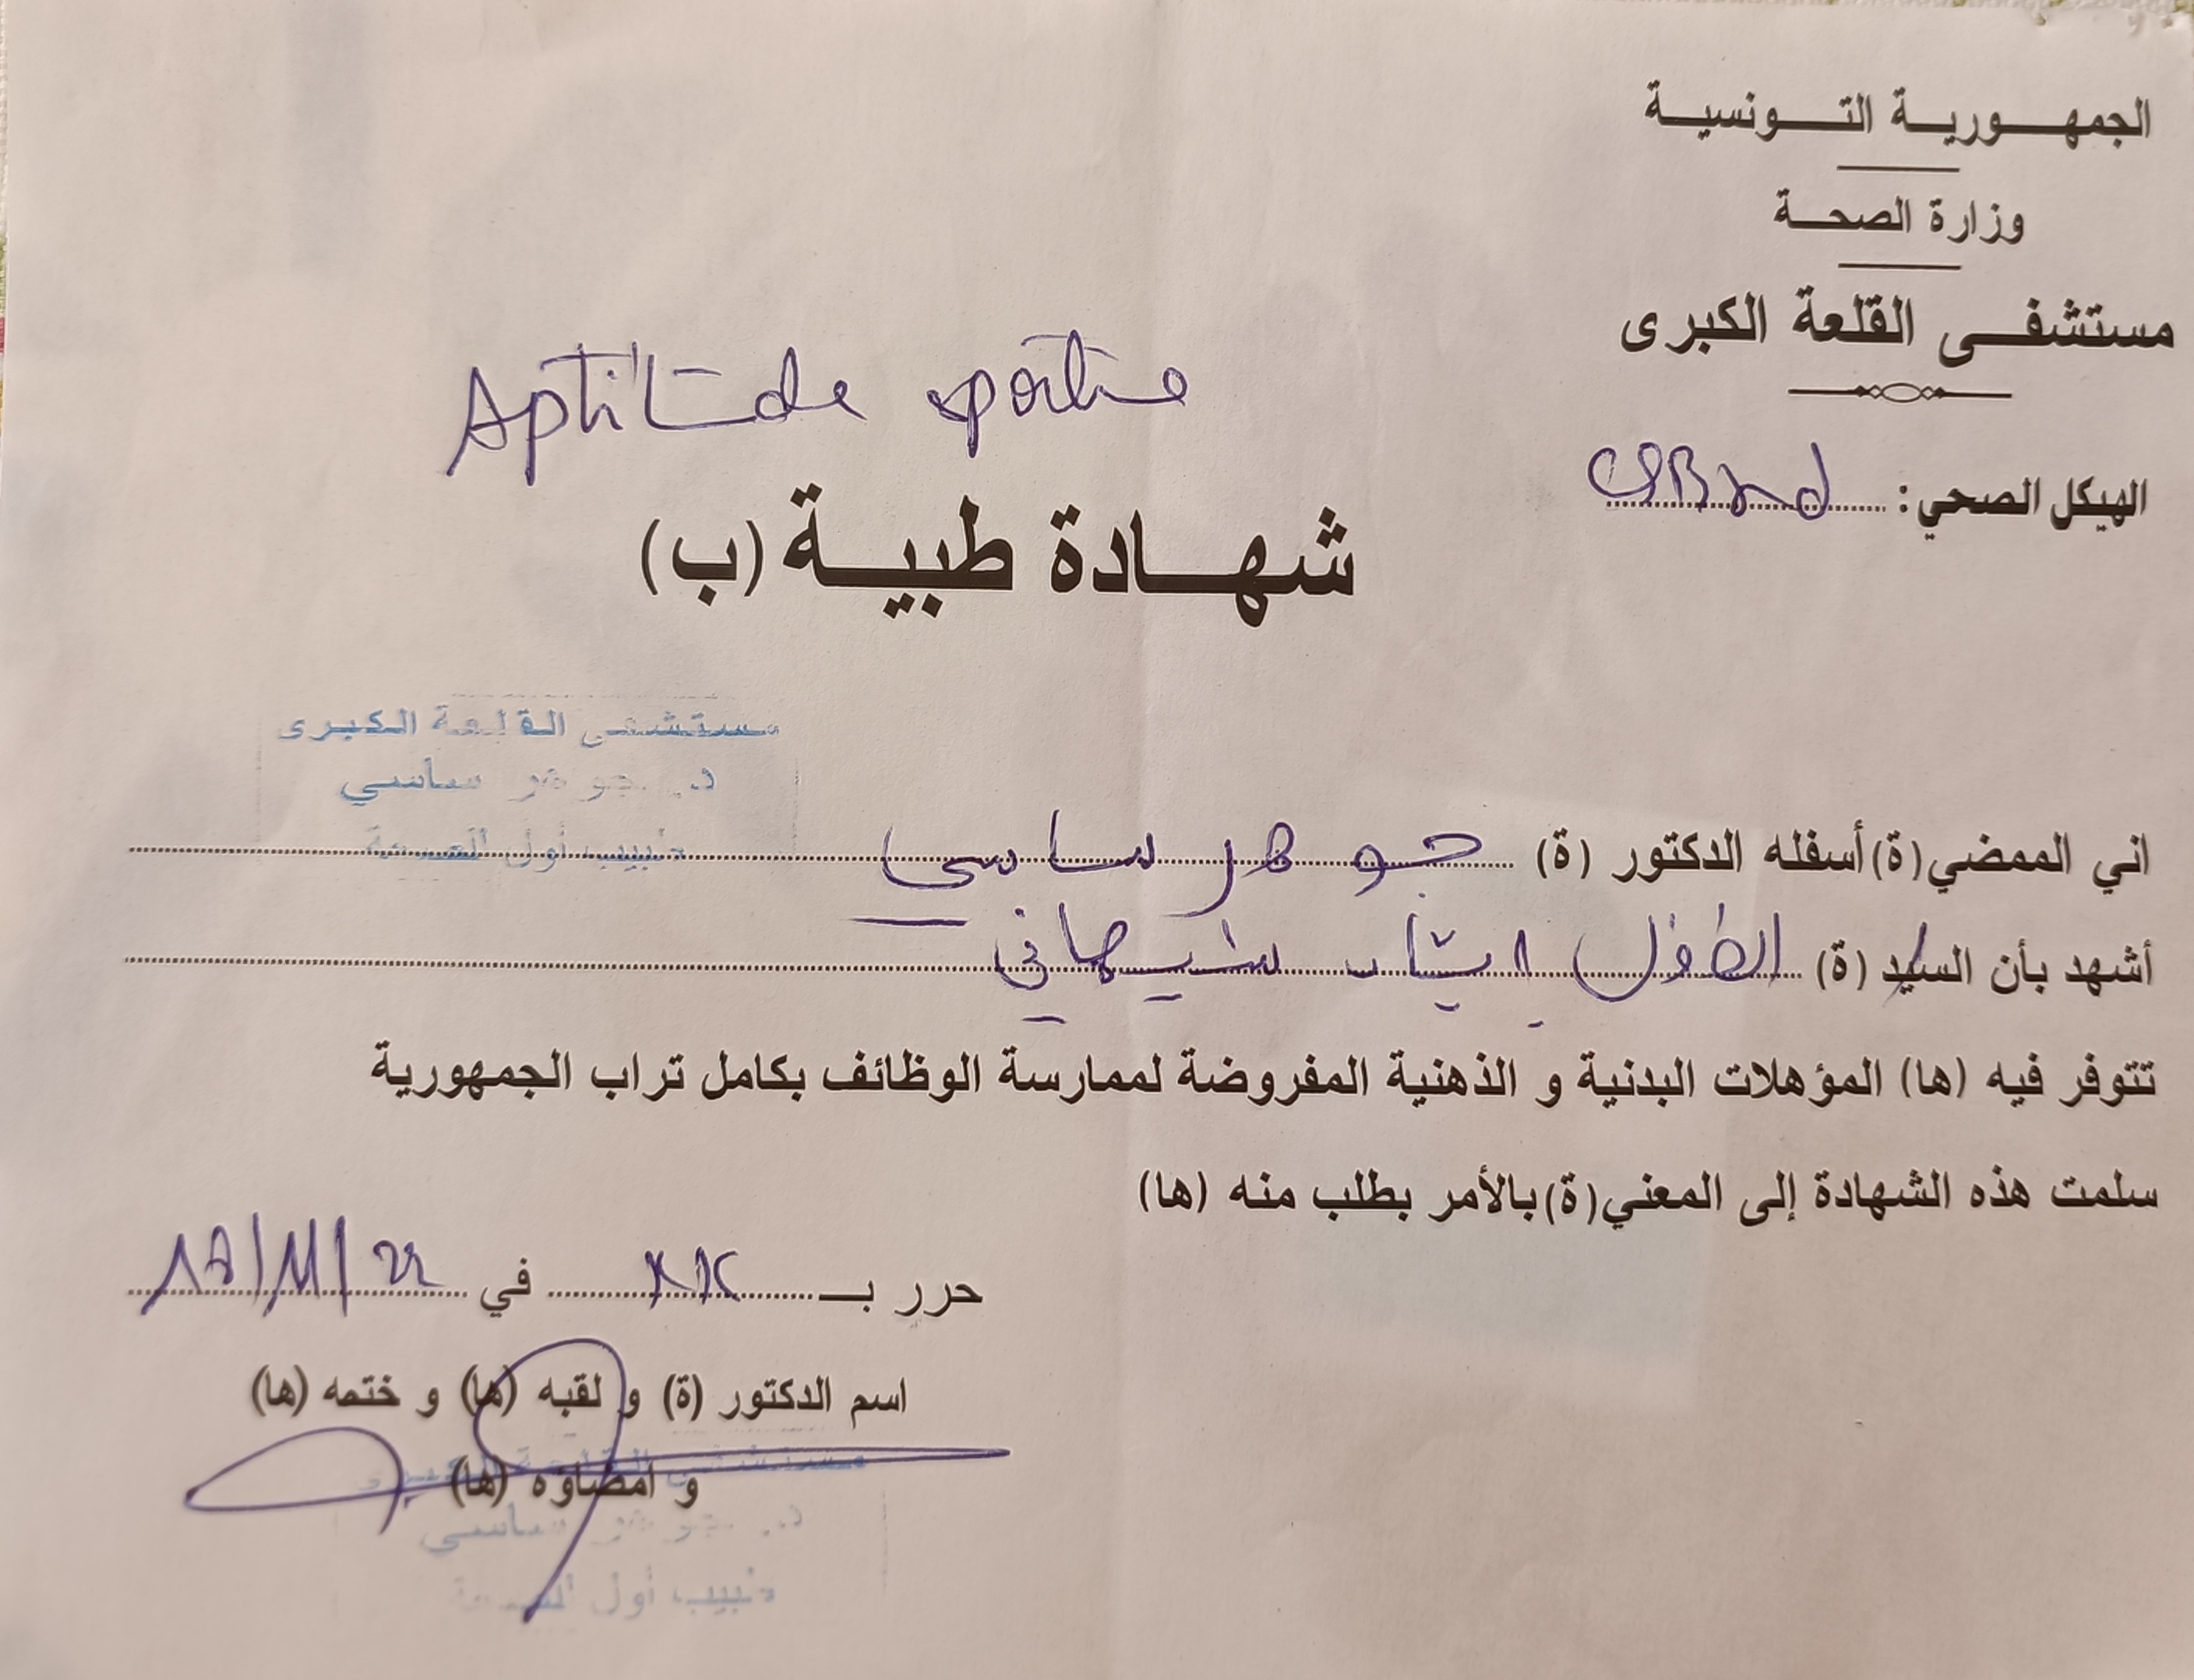 الجمهورية التونسية
وزارة الصحة
مستشفى القلعة الكبرى
الهيكل الصحي:
Aptitude sportive
شهادة طبية (ب)
مستشفى القلعة الكبرى
د. جوهر ساسي
طبيب أول للصحة
اني الممضي(ة) أسفله الدكتور (ة) جوهر ساسي
أشهد بأن السيد (ة) الطفل
تتوفر فيه (ها) المؤهلات البدنية و الذهنية المفروضة لممارسة الوظائف بكامل تراب الجمهورية
سلمت هذه الشهادة إلى المعني(ة) بالأمر بطلب منه (ها)
حرر بـ KK في 18/11/22
اسم الدكتور (ة) و لقبه (ها) و ختمه (ها)
و امضاؤه (ها)
مستشفى القلعة الكبرى
د. جوهر ساسي
طبيب أول للصحة